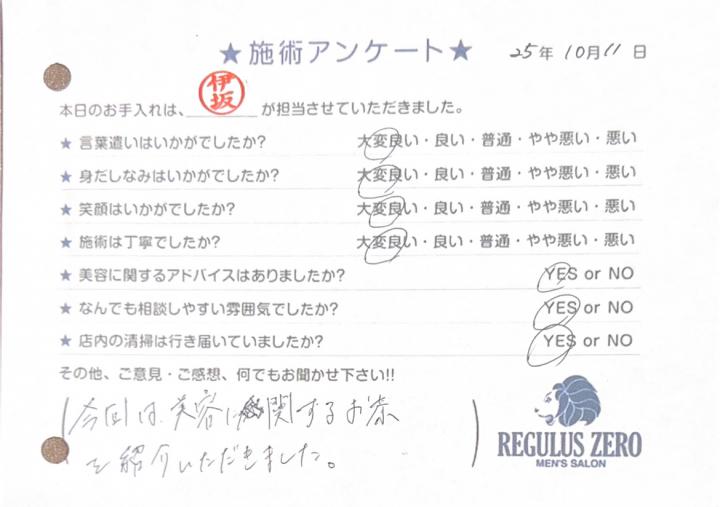 ★施術アンケート★ 25年 10月 11日
本日のお手入れは、伊坂が担当させていただきました。
★ 言葉遣いはいかがでしたか? 大変良い・良い・普通・やや悪い・悪い
★ 身だしなみはいかがでしたか? 大変良い・良い・普通・やや悪い・悪い
★ 笑顔はいかがでしたか? 大変良い・良い・普通・やや悪い・悪い
★ 施術は丁寧でしたか? 大変良い・良い・普通・やや悪い・悪い
★ 美容に関するアドバイスはありましたか? YES or NO
★ なんでも相談しやすい雰囲気でしたか? YES or NO
★ 店内の清掃は行き届いていましたか? YES or NO
その他、ご意見・ご感想、何でもお聞かせ下さい!!
今回は、美容に関するお茶
を紹介いただきました。
REGULUS ZERO
MEN'S SALON